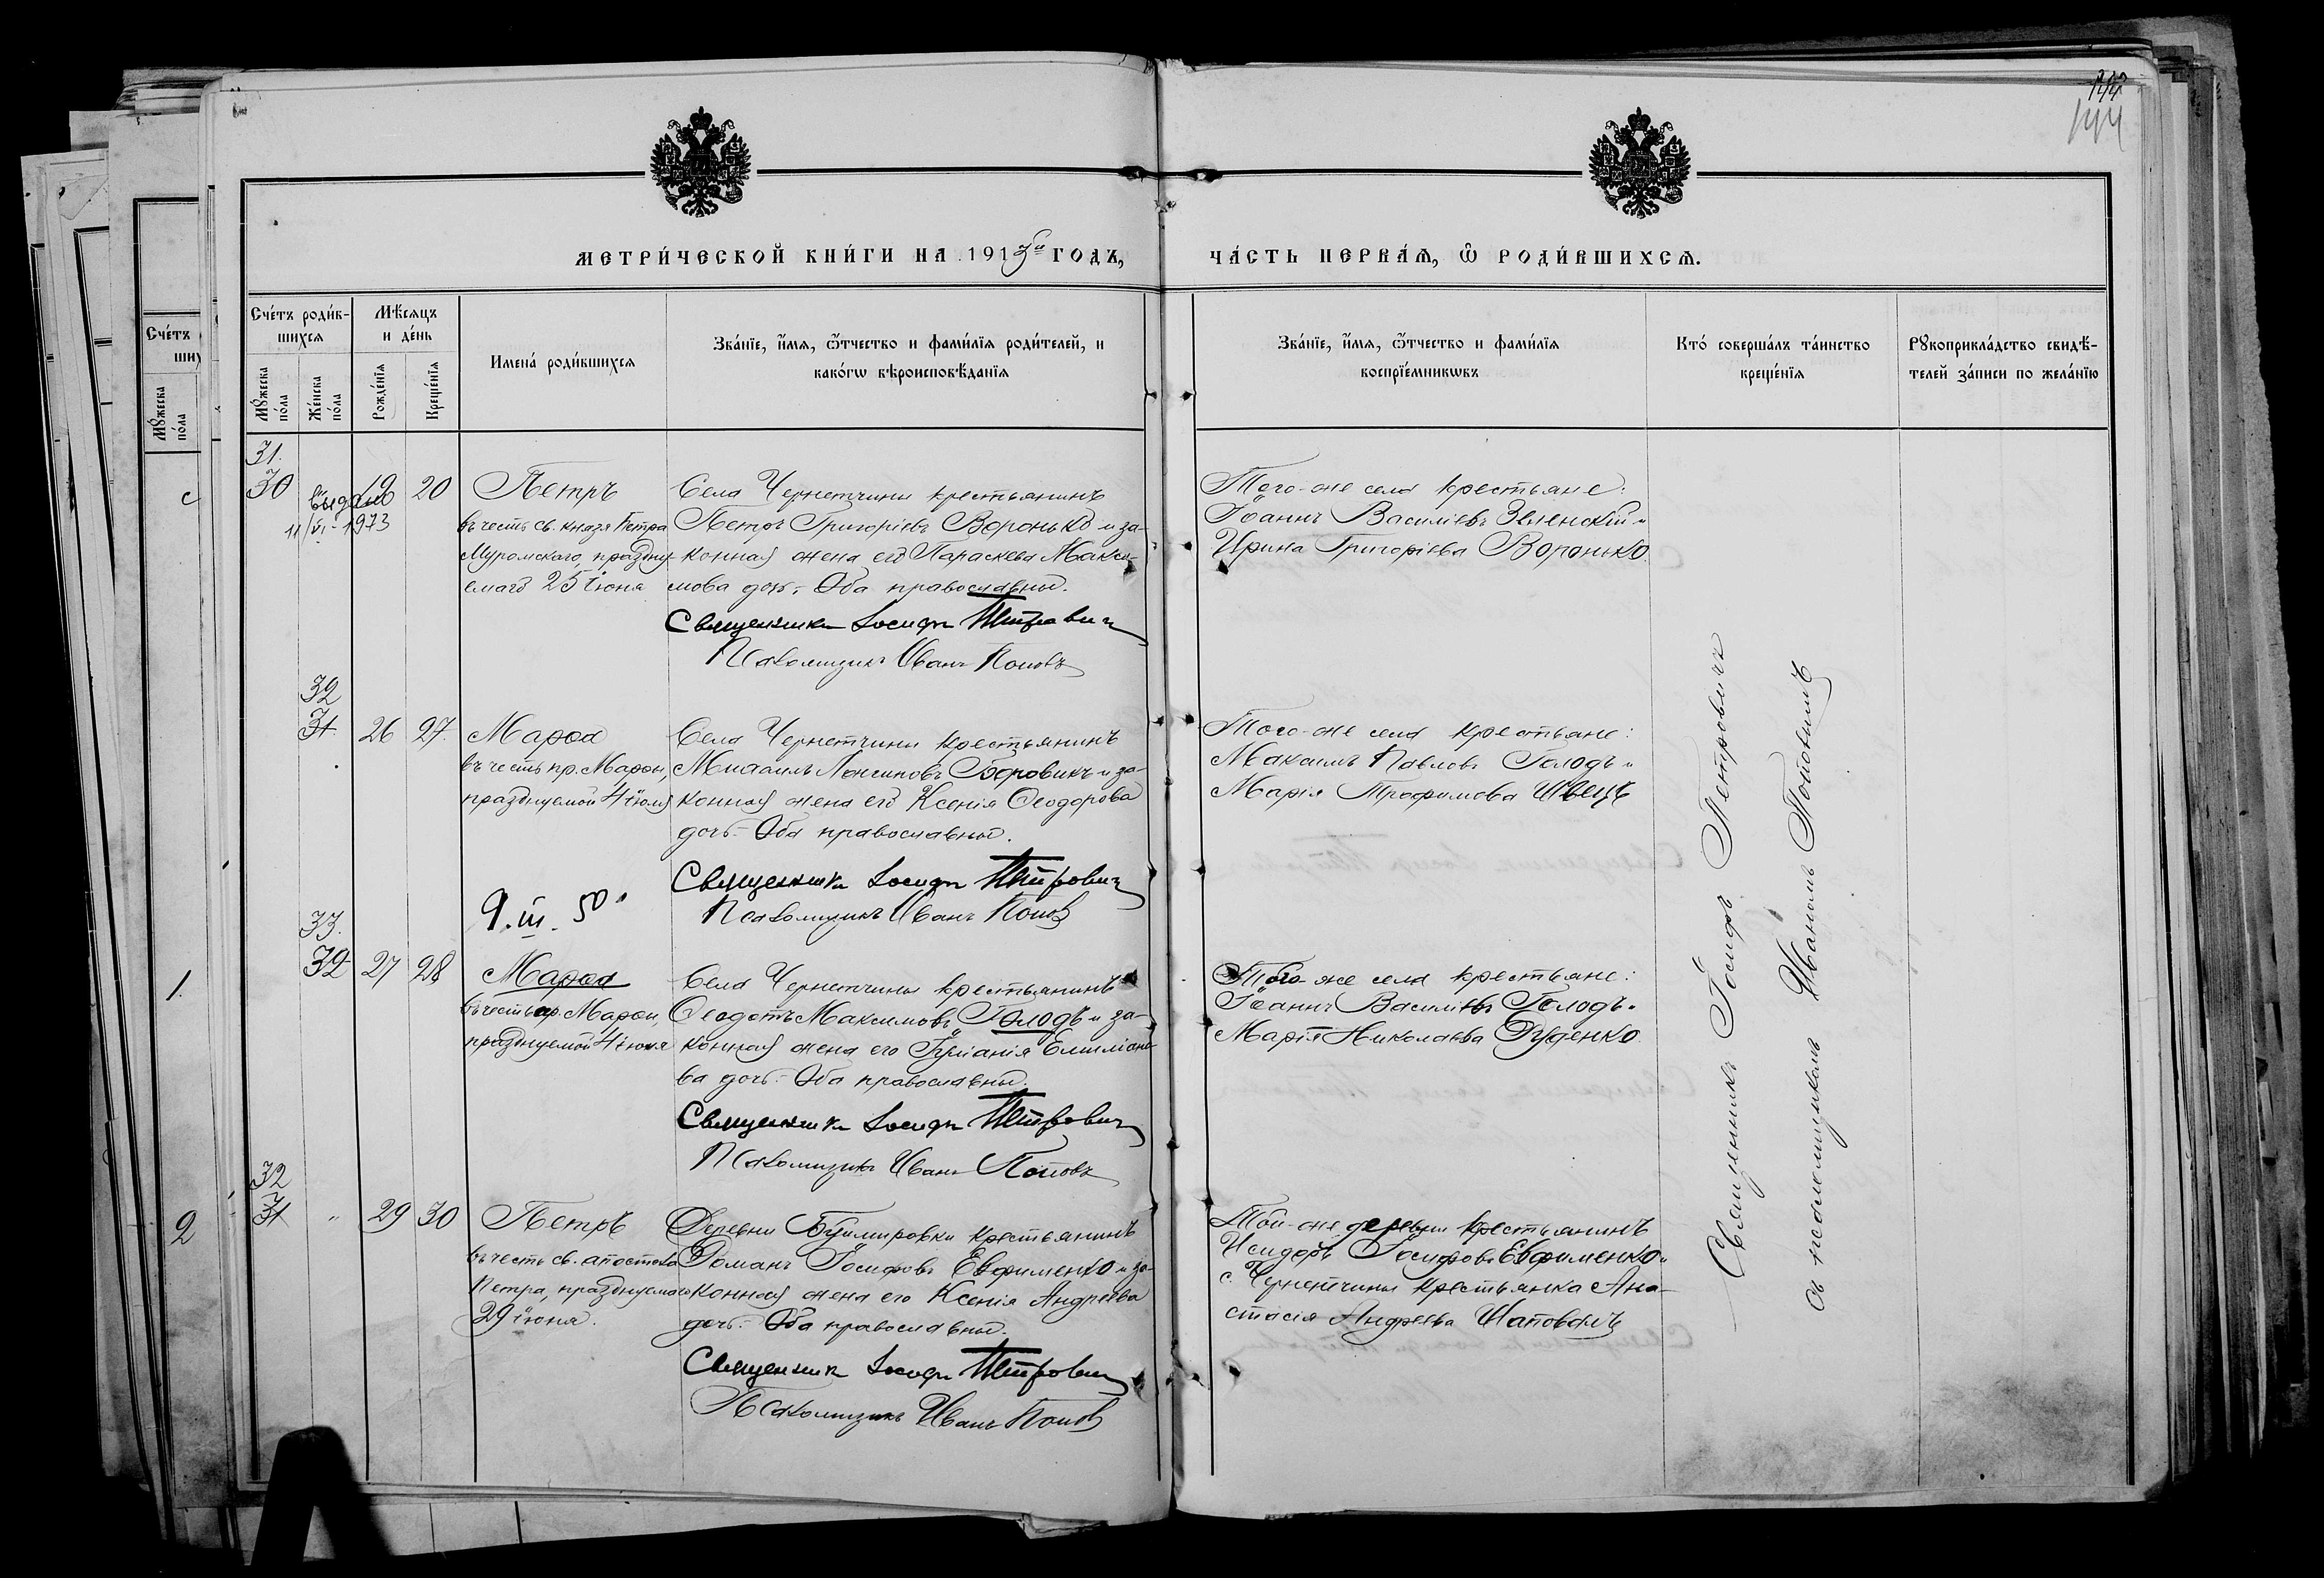 144
МЕТРИ́ЧЕСКОЙ КНИ́ГИ НА 1913й ГОДЪ,
ЧА́СТЬ ПЕРВАѦ, Ѡ РОДИ́ВШИХСѦ.
Сче́тъ роди́в-
шихсѧ
Мꙋ́жеска
по́ла
Же́нска
по́ла
Мѣ́сѧцъ
и де́нь
Рожде́нїѧ
Креще́нїѧ
Имена́ роди́вшихсѧ
Зва́нїе, и҆́мѧ, ѻ҆́тчество и фами́лїѧ роди́телей, и
како́гѡ вѣроисповѣ́данїѧ
Зва́нїе, и҆́мѧ, ѻ҆́тчество и фами́лїѧ
воспрїе́мникѡвъ
Кто́ соверша́лъ та́инство
креще́нїѧ
Рꙋкоприкла́дство свидѣ́-
телей за́писи по жела́нїю
Сче́тъ
Мꙋ́жеска
по́ла
1.
2
31.
30
19 20
выдано
11/VI-1973
Петръ
въ честь св. князя Петра
Муромскаго, праздну-
емаго 25 іюня
Села Чернетчины крестьянинъ
Петръ Григоріевъ Воронько и за-
конная жена его Параскева Макси-
мова дочь, Оба православны.
Священникъ Іосифъ Петровичъ
Псаломщикъ Иванъ Поповъ
Того-же села крестьяне:
Іоаннъ Василіевъ Зеленскій и
Ирина Григоріева Воронько.
32
31 26 27.
Марѳа
въ честь пр. Марѳы,
празднуемой 4 іюля
Села Чернетчины крестьянинъ
Михаилъ Логиновъ Боровикъ и за-
конная жена его Ксенія Ѳеодорова
дочь. Оба православны.
Священникъ Іосифъ Петровичъ
Псаломщикъ Иванъ Поповъ
9.III.50
Того-же села крестьяне:
Максимъ Павловъ Голодъ и
Марія Трофимова Швецъ
33.
32 27 28
Марѳа
въ честь пр. Марѳы,
празднуемой 4 іюля
Села Чернетчины крестьянинъ
Ѳеодотъ Максимовъ Голодъ и за-
конная жена его Іуліанія Емиліано-
ва дочь. Оба православны.
Священникъ Іосифъ Петровичъ
Псаломщикъ Иванъ Поповъ
Того-же села крестьяне:
Іоаннъ Василіевъ Голодъ и
Марія Николаева Руденко.
32
31 " 29 30
Петръ
въ честь св. апостола
Петра, празднуемаго
29 іюня.
Деревни Буймировки крестьянинъ
Романъ Іосифовъ Евфименко и за-
конная жена его Ксенія Андреева
дочь. Оба православны.
Священникъ Іосифъ Петровичъ
Псаломщикъ Иванъ Поповъ
Той-же деревни крестьянинъ
Исидоръ Іосифовъ Евфименко и
с. Чернетчины крестьянка Ана-
стасія Андреева Шаповалъ
Священникъ Іосифъ Петровичъ
съ псаломщикомъ Иваномъ Поповымъ